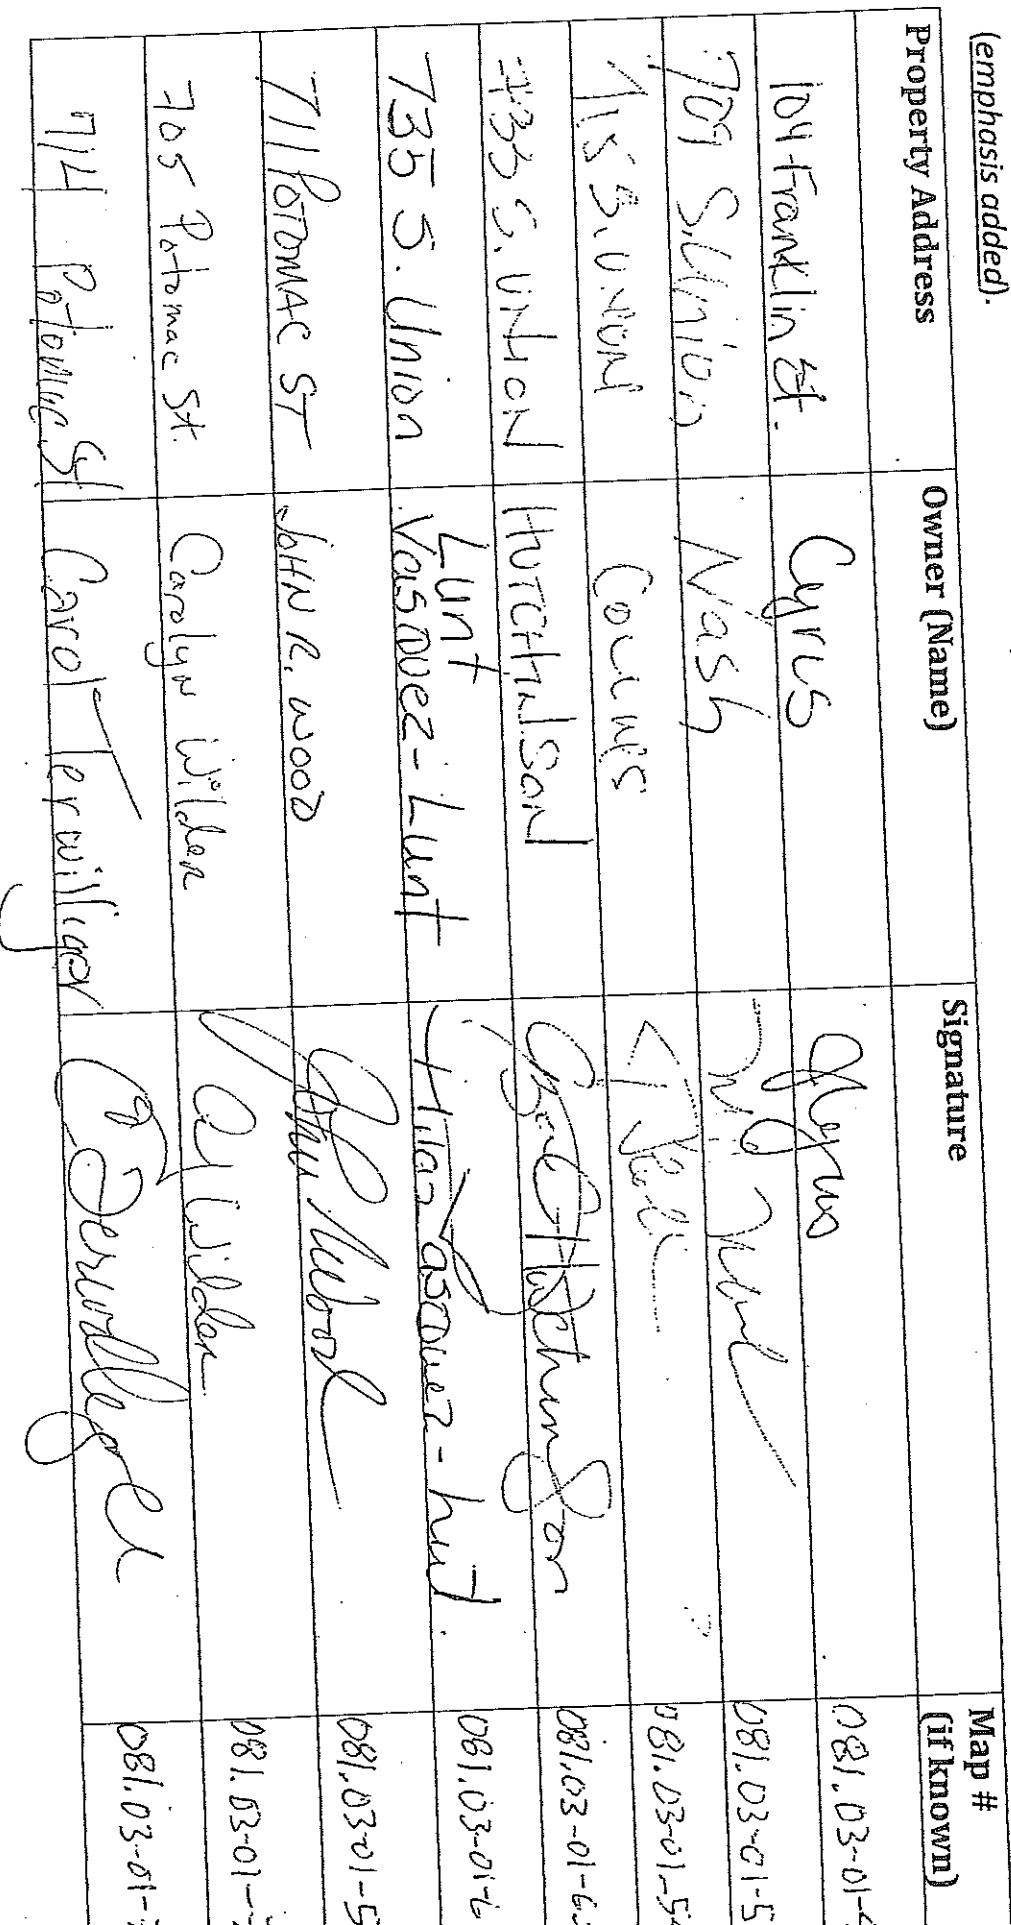 (emphasis added).
Property Address Owner (Name) Signature Map # (if known)
104 Franklin St. Cyrus Cyrus 081.03-01-
709 S. Union Nash 081.03-01-5
715 S. UNION 081.03-01-5
733 S. UNION HUTCHINSON Hutchinson 081.03-01-6
735 S. Union Lunt Vasquez-Lunt Vasquez-Lunt 081.03-01-6
711 POTOMAC ST JOHN R. WOOD John R Wood 081.03-01-5
705 Potomac St. Carolyn Wilder Wilder 081.03-01-
714 Potomac St Carol Terwilliger C Terwilliger 081.03-01-